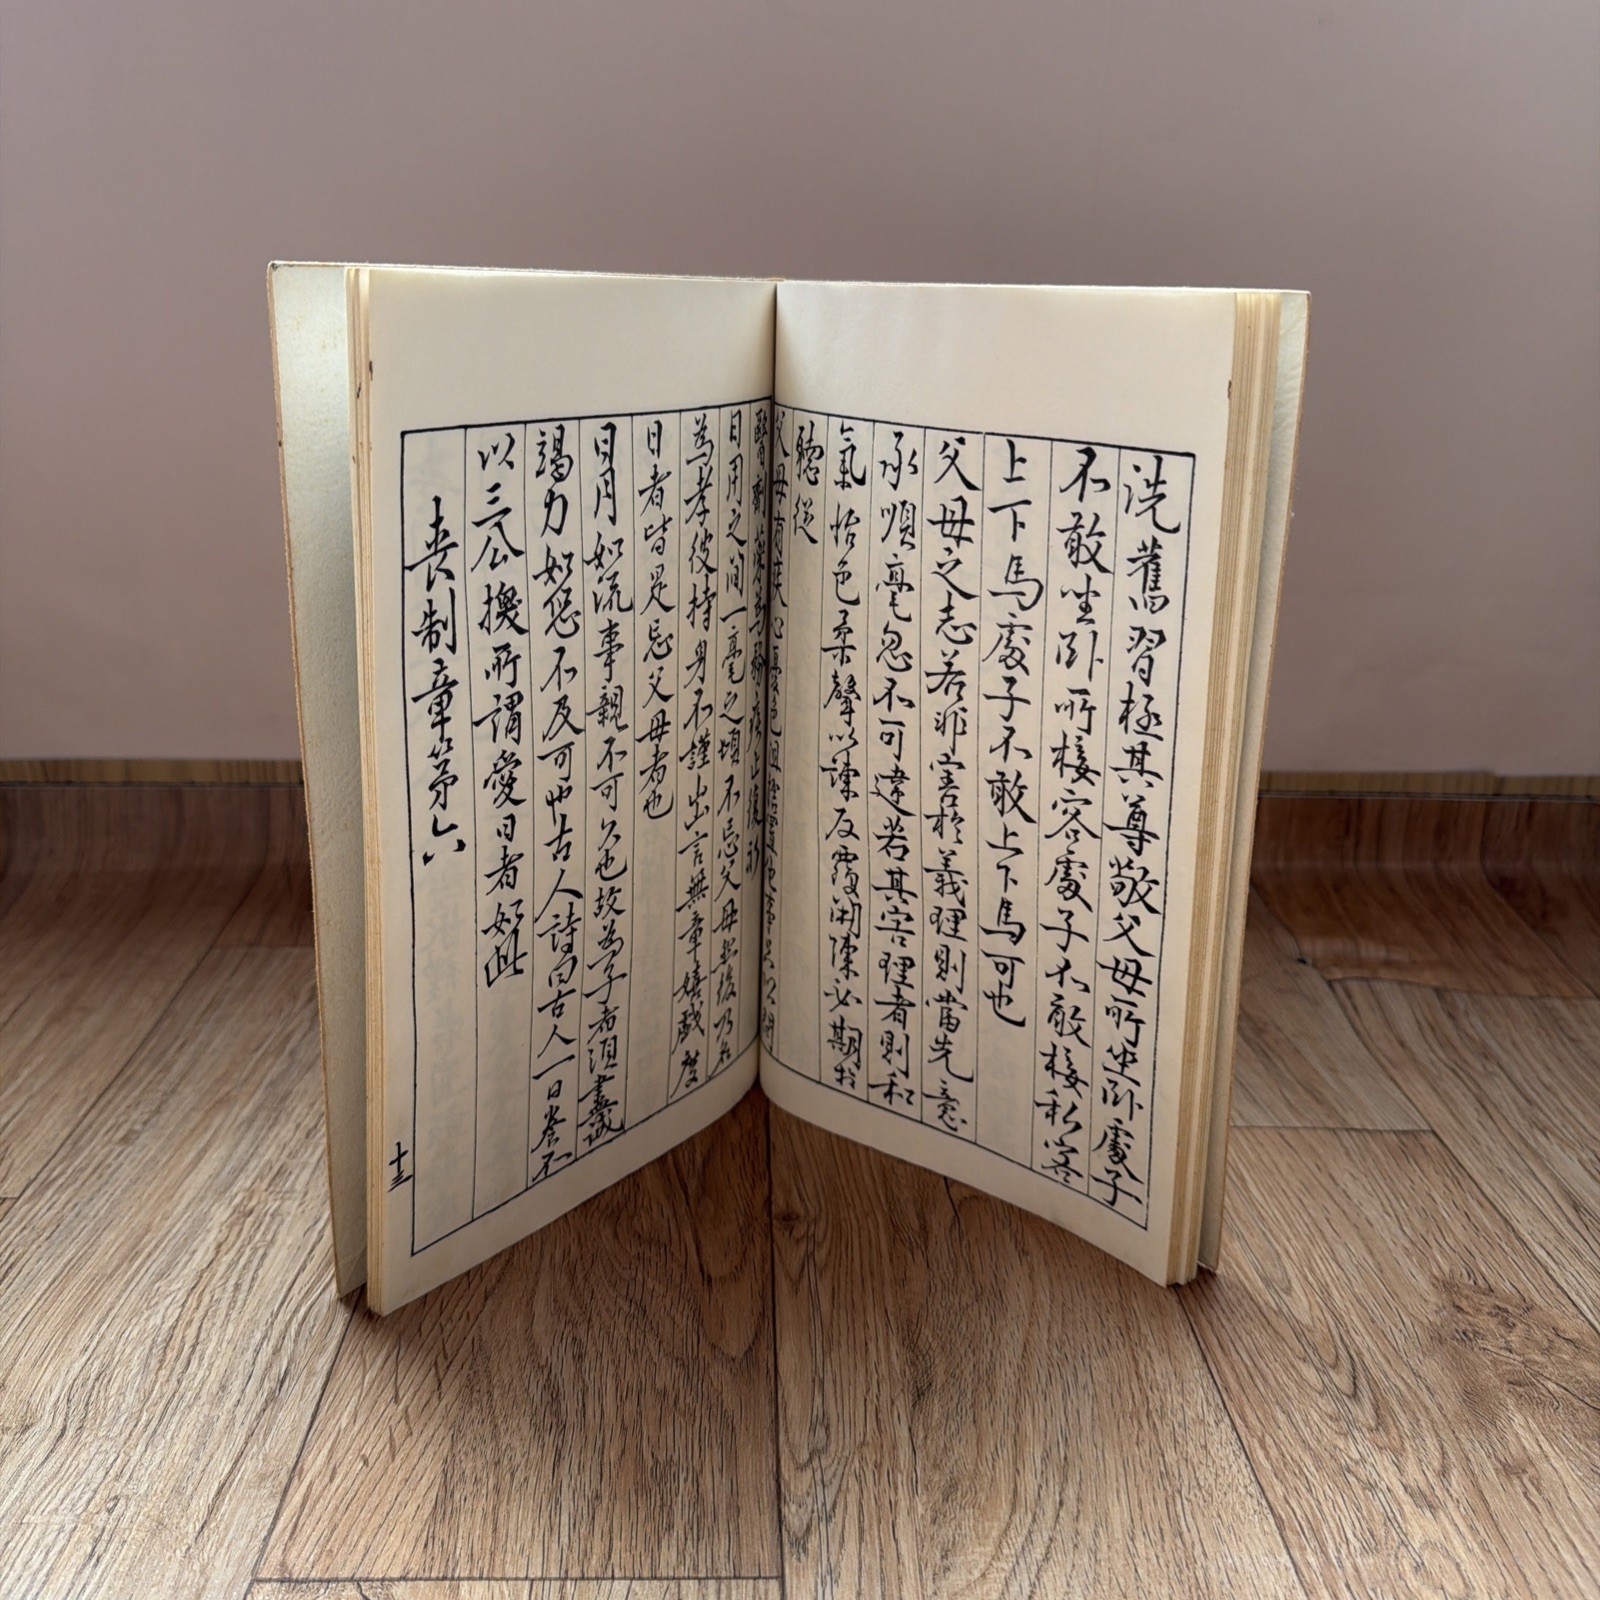 洗舊習極其尊敬父母所坐臥處子
不敢坐臥所接客處子不敢接私客
上下馬處子不敢上下馬可也
父母之志若非害於義理則當先意
承順毫忽不可違若其害理者則和
氣怡色柔聲以諫反覆開陳必期於
聽從
父母有疾心憂色沮捨置他事只以問
醫劑藥為務疾止復初
日用之間一毫之頃不忘父母然後乃名
為孝彼持身不謹出言無章嬉戲度
日者皆是忘父母者也
日月如流事親不可久也故為子者須盡誠
竭力如恐不及可也古人詩曰古人一日養不
以三公換所謂愛日者如此
喪制章第六
十三